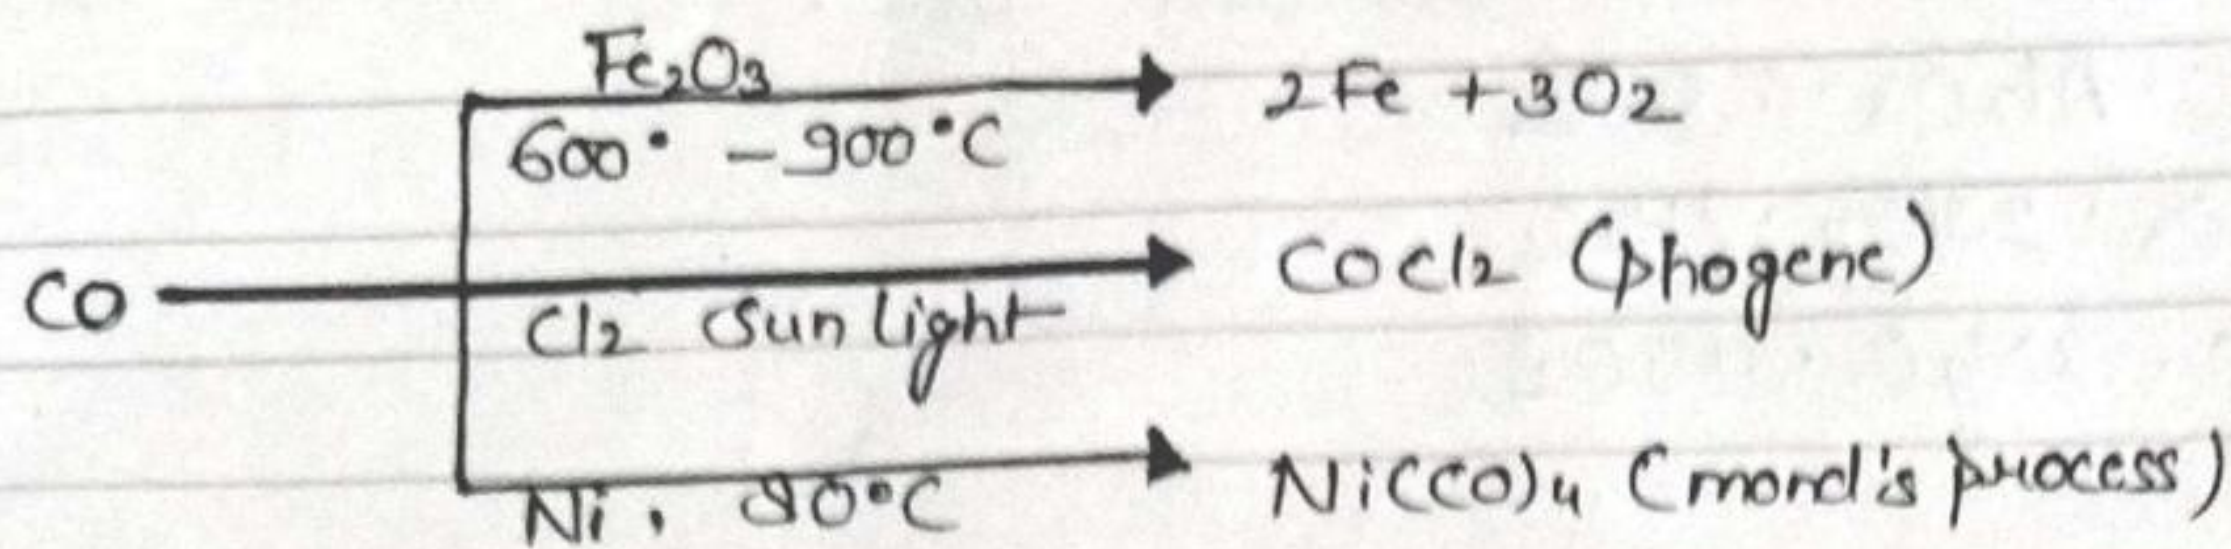 Fe₂O₃
600° - 900°C
2Fe + 3O₂
CO
Cl₂ Sun light
COCl₂ (phogene)
Ni, 80°C
Ni(CO)₄ (mond's process)